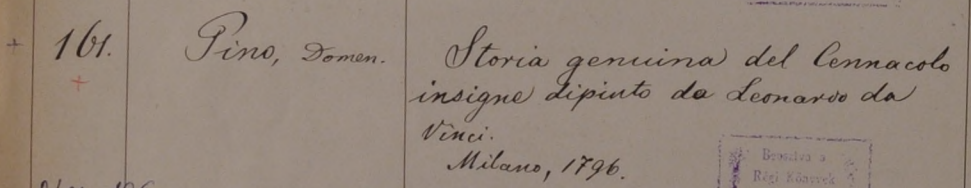 161. Pino, Domen. Storia genuina del Cennacolo
insigne dipinto da Leonardo da
Vinci.
Milano, 1796.
Beosztva a
Régi Könyvek